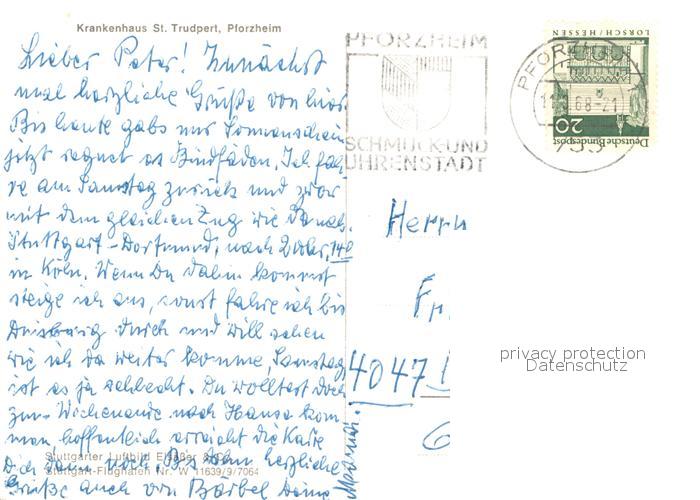 Krankenhaus St. Trudpert, Pforzheim
Lieber Peter! Zunächst
mal herzliche Grüße von hier
Bis heute gabs nur Sonnenschein
jetzt regnet es Bindfäden. Ich fah-
re am Samstag zurück und zwar
mit dem gleichen Zug wie Du
Stuttgart-Dortmund, nach 2 Uhr, 14
in Köln. Wenn Du dahin kommst
steige ich aus, sonst fahre ich bis
Duisburg durch und will sehen
wie ich da weiter komme, Samstag
ist es ja schlecht. Du wolltest doch
zum Wochenende nach Hause kom
men, hoffentlich erreicht die Karte
Dich dann noch. Bis dahin herzliche
Grüße auch von Bärbel Deine
Stuttgarter Luftbild Elsäßer & Co
Stuttgart-Flughafen Nr. W 11639/9/7064
PFORZHEIM
SCHMUCK-UND
UHRENSTADT
PFORZHEIM
68-21
753
LORSCH/HESSEN
20
Deutsche Bundespost
Herrn
4047
privacy protection
Datenschutz